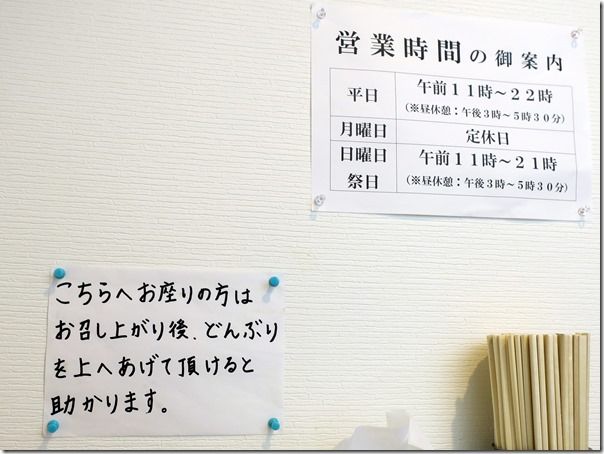 営業時間の御案内
平日 午前１１時～２２時
（※昼休憩：午後３時～５時３０分）
月曜日 定休日
日曜日 午前１１時～２１時
祭日 （※昼休憩：午後３時～５時３０分）
こちらへお座りの方は
お召し上がり後、どんぶり
を上へあげて頂けると
助かります。